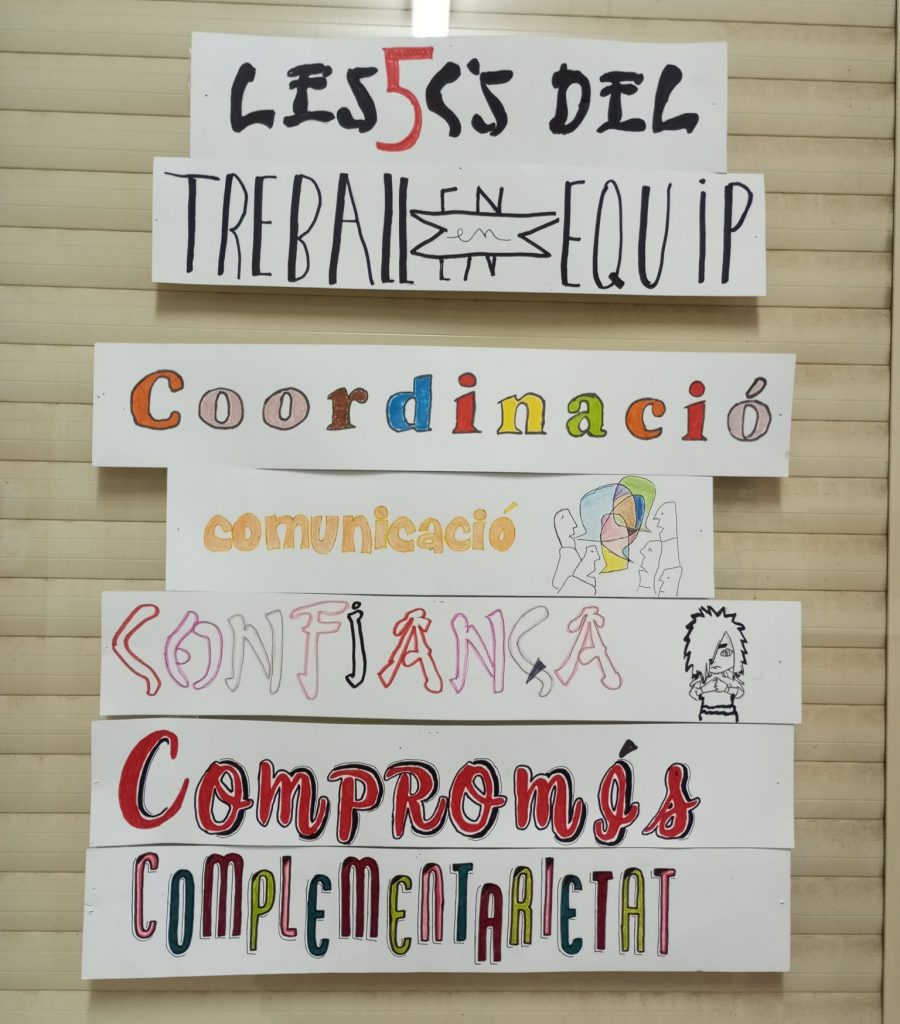 LES 5 C'S DEL
TREBALL EN en EQUIP
Coordinació
comunicació
CONFIANÇA
COMPROMÍS
COMPLEMENTARIETAT